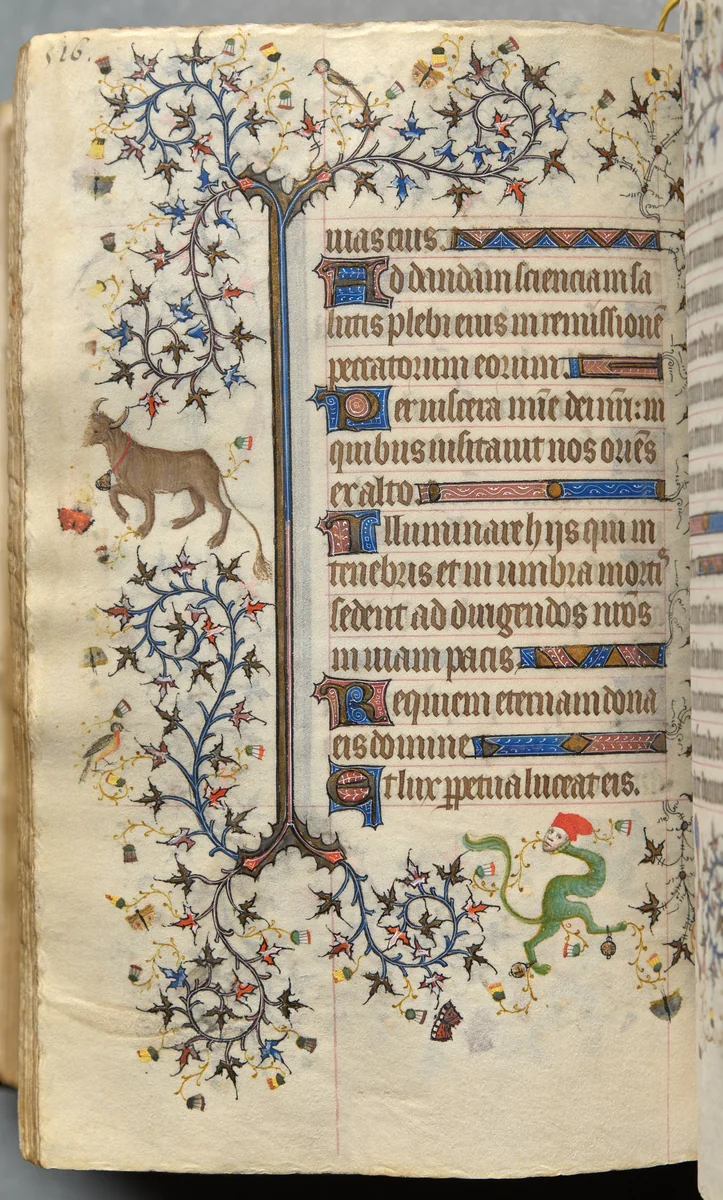 516.
uias eius.
Ad dandam scienciam sa
lutis plebi eius in remissionē
peccatorum eorum.
Per uiscera mīe dei nr̄i: in
quibus uisitauit nos oriēs
ex alto.
Illuminare hijs qui in
tenebris et in umbra mortis
sedent ad dirigendos nr̄os
in uiam pacis
Requiem eternam dona
eis domine
Et lux ꝑpetua luceat eis.